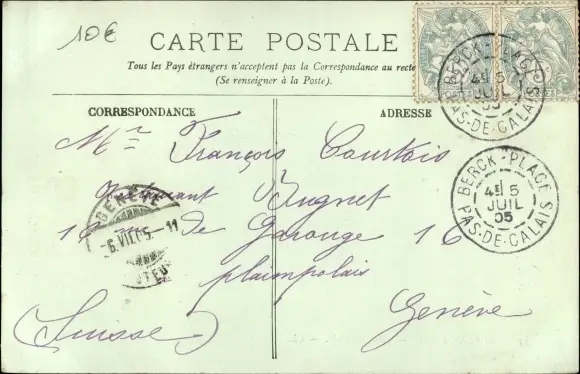 10€
CARTE POSTALE
Tous les Pays étrangers n'acceptent pas la Correspondance au recto
(Se renseigner à la Poste).
CORRESPONDANCE
ADRESSE
Mr François Courtois
Bugnet
16 rue de Carouge 16
plainpalais
(Suisse)
Genève
BERCK-PLAGE
4E 5
JUIL
05
PAS-DE-CALAIS
BERCK-PLAGE
4E 5
JUIL
05
PAS-DE-CALAIS
GENÈVE
6.VII.05.-11